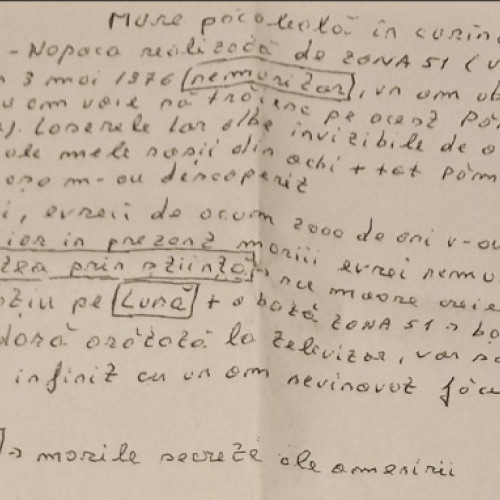 Mure păcoleală în curîn
- Napoca realizată de ZONA 51 (v
n 3 mai 1976 (nemuritor), un om ob
u am voie să trăiesc pe acest Pă
). Laserele lor albe invizibile de o
ale mele roșii din ochi + tot păm
așa m-au descoperit
i, evreii de acum 2000 de ani v-au
ior in prezent morții evrei nemu
tea prin știință → nu moare
pe Lună + o bază ZONA 51 → ba
dară arătată la televizor, vor
infinit cu un om nevinovat făcu
→ marile secrete ale omenirii